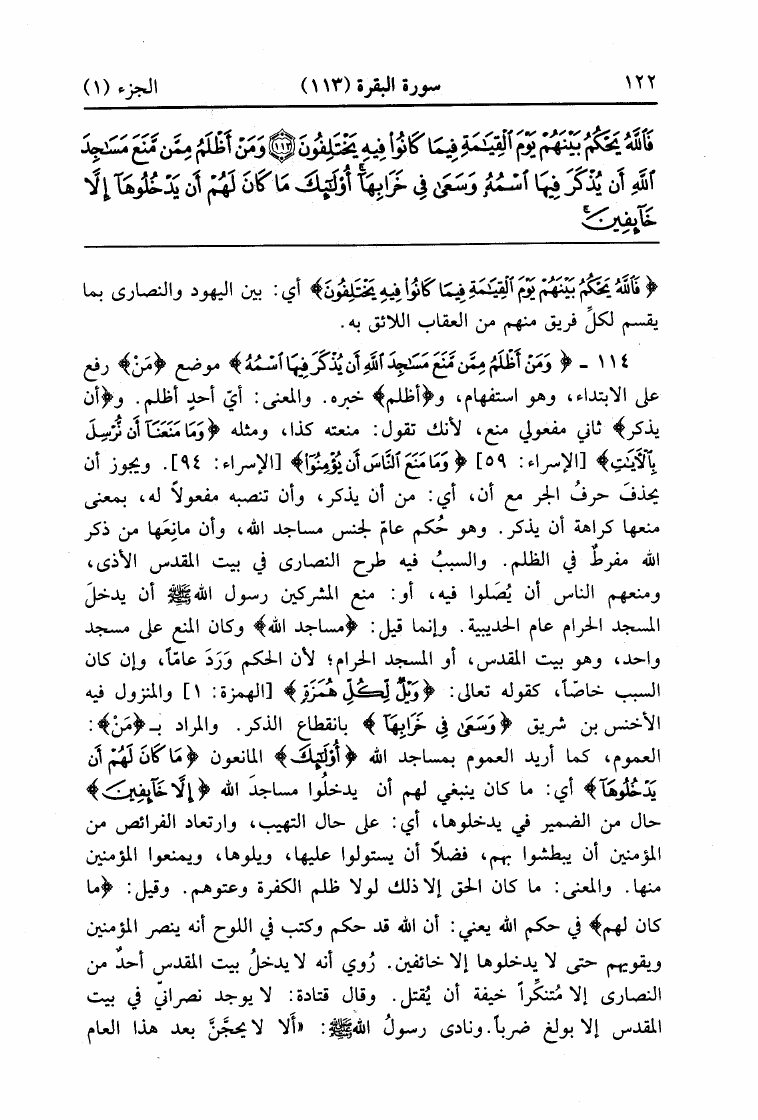 ١٢٢ سورة البقرة (١١٣) الجزء (١)
فَاللَّهُ يَحْكُمُ بَيْنَهُمْ يَوْمَ الْقِيَامَةِ فِيمَا كَانُوا فِيهِ يَخْتَلِفُونَ ﴿١١٣﴾ وَمَنْ أَظْلَمُ مِمَّن مَّنَعَ مَسَاجِدَ
اللَّهِ أَن يُذْكَرَ فِيهَا اسْمُهُ وَسَعَى فِي خَرَابِهَا أُوْلَئِكَ مَا كَانَ لَهُمْ أَن يَدْخُلُوهَا إِلَّا
خَآئِفِينَ
﴿فَاللَّهُ يَحْكُمُ بَيْنَهُمْ يَوْمَ الْقِيَامَةِ فِيمَا كَانُوا فِيهِ يَخْتَلِفُونَ﴾ أي: بين اليهود والنصارى بما
يقسم لكلِّ فريق منهم من العقاب اللائق به.
١١٤ ـ ﴿وَمَنْ أَظْلَمُ مِمَّن مَّنَعَ مَسَاجِدَ اللَّهِ أَن يُذْكَرَ فِيهَا اسْمُهُ﴾ موضع ﴿مَنْ﴾ رفع
على الابتداء، وهو استفهام، و﴿أظلم﴾ خبره. والمعنى: أيّ أحدٍ أظلم. و﴿أن
يذكر﴾ ثاني مفعولي منع، لأنك تقول: منعته كذا، ومثله ﴿وَمَا مَنَعَنَآ أَن نُّرْسِلَ
بِالْآيَاتِ﴾ [الإسراء: ٥٩] ﴿وَمَا مَنَعَ النَّاسَ أَن يُؤْمِنُوٓا﴾ [الإسراء: ٩٤]. ويجوز أن
يحذفَ حرفُ الجر مع أن، أي: من أن يذكر، وأن تنصبه مفعولاً له، بمعنى
منعها كراهة أن يذكر. وهو حُكم عامّ لجنس مساجد الله، وأن مانِعَها من ذكر
الله مفرطٌ في الظلم. والسببُ فيه طرح النصارى في بيت المقدس الأذى،
ومنعهم الناس أن يُصَلوا فيه، أو: منع المشركين رسول الله ﷺ أن يدخلَ
المسجد الحرام عام الحديبية. وإنما قيل: ﴿مساجد الله﴾ وكان المنع على مسجد
واحد، وهو بيت المقدس، أو المسجد الحرام؛ لأن الحكم وَرَدَ عامّاً، وإن كان
السبب خاصّاً، كقوله تعالى: ﴿وَيْلٌ لِّكُلِّ هُمَزَةٍ﴾ [الهمزة: ١] والمنزول فيه
الأخنس بن شريق ﴿وَسَعَى فِي خَرَابِهَآ﴾ بانقطاع الذكر. والمراد بـ﴿مَنْ﴾:
العموم، كما أريد العموم بمساجد الله ﴿أُوْلَئِكَ﴾ المانعون ﴿مَا كَانَ لَهُمْ أَن
يَدْخُلُوهَآ﴾ أي: ما كان ينبغي لهم أن يدخلُوا مساجدَ الله ﴿إِلَّا خَآئِفِينَ﴾
حال من الضمير في يدخلوها، أي: على حال التهيب، وارتعاد الفرائص من
المؤمنين أن يبطشوا بهم، فضلاً أن يستولوا عليها، ويلوها، ويمنعوا المؤمنين
منها. والمعنى: ما كان الحق إلا ذلك لولا ظلم الكفرة وعتوهم. وقيل: ﴿ما
كان لهم﴾ في حكم الله يعني: أن الله قد حكم وكتب في اللوح أنه ينصر المؤمنين
ويقويهم حتى لا يدخلوها إلا خائفين. رُوي أنه لا يدخلُ بيت المقدس أحدٌ من
النصارى إلا مُتنكِّراً خيفة أن يُقتل. وقال قتادة: لا يوجد نصرانيّ في بيت
المقدس إلا بولغ ضرباً. ونادى رسولُ الله ﷺ: «أَلا لا يحجَّنَّ بعد هذا العام